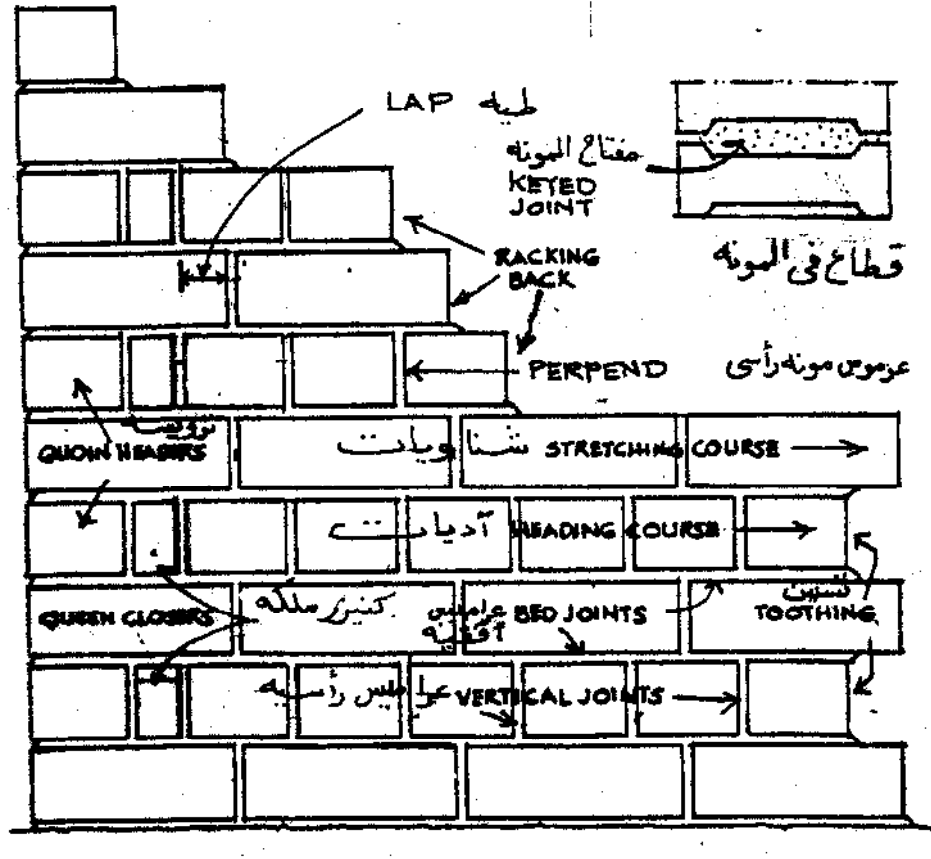 LAP طيه
مفتاح المونه
KEYED
JOINT
قطاع فى المونه
RACKING
BACK
PERPEND
عرموس مونه رأسى
QUOIN HEADERS
شناويات STRETCHING COURSE
آديات HEADING COURSE
QUEEN CLOSERS
كنيزر ملكه
عراميس
آفقيه
BED JOINTS
TOOTHING
عراميس رأسيه VERTICAL JOINTS